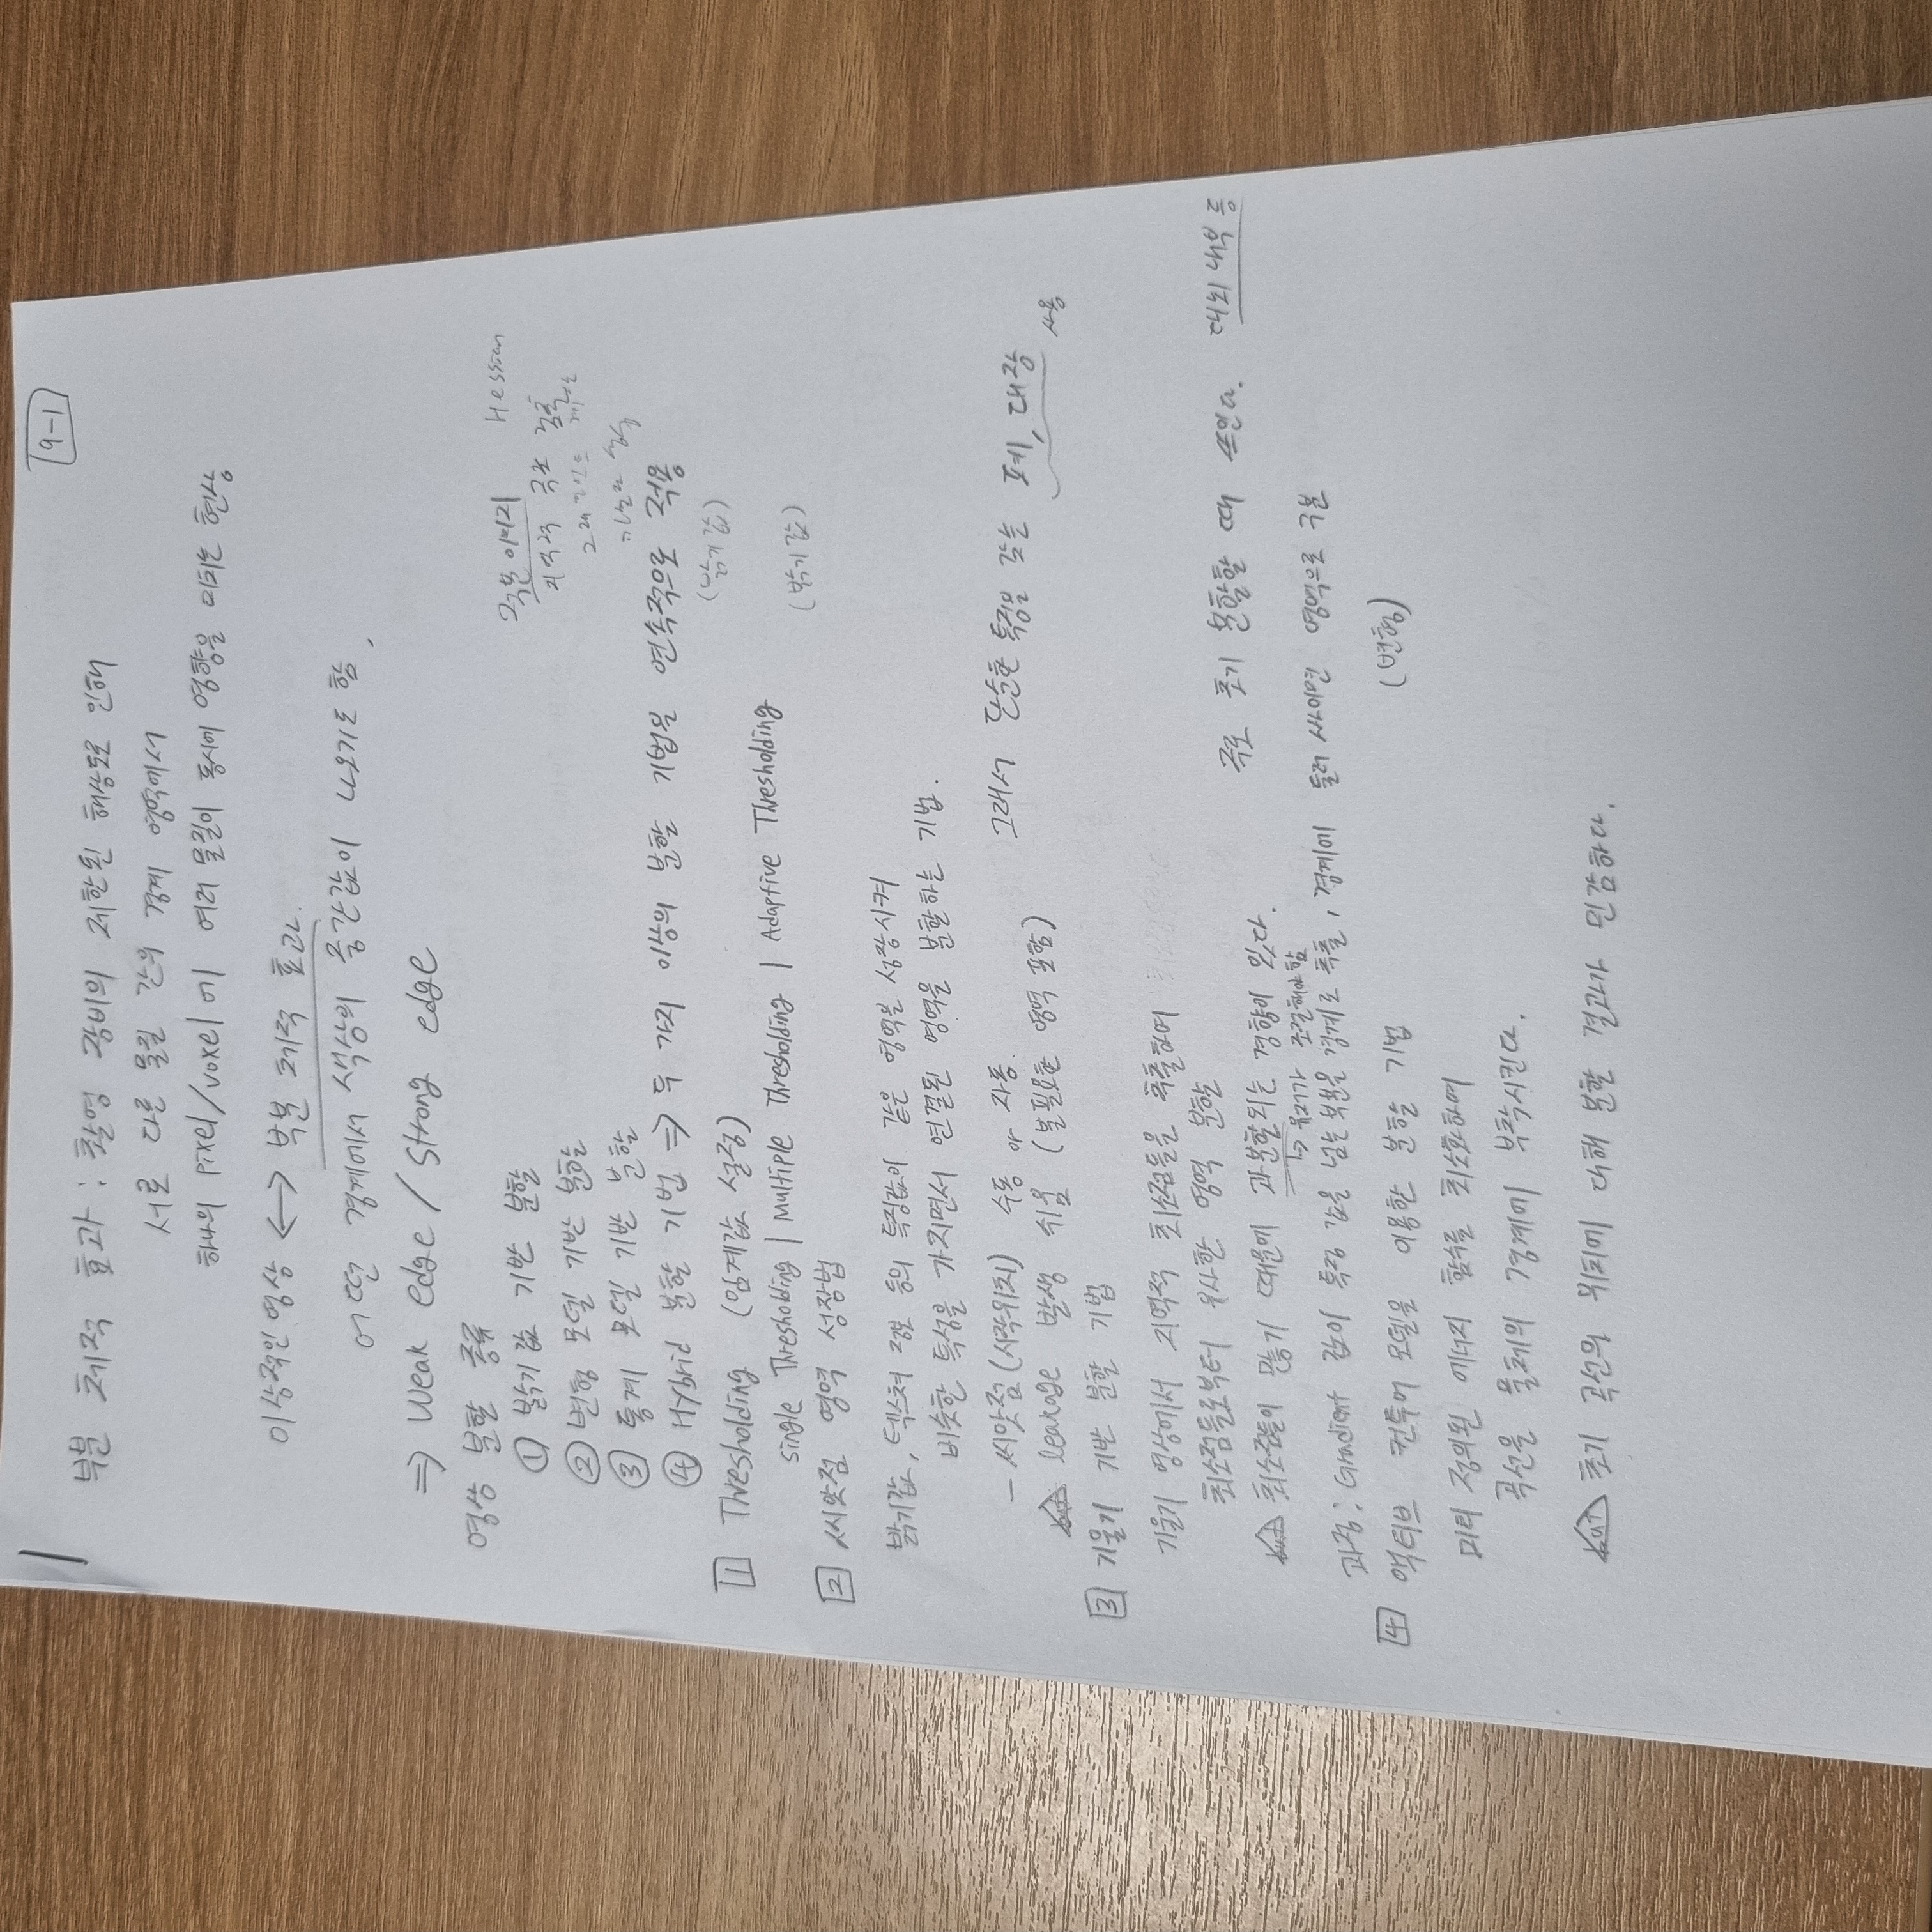 9-1
부분 체적 효과 : 촬영 장비의 제한된 해상도로 인해
서로 다른 물질 간의 경계 영역에서
하나의 pixel/voxel에 여러 물질이 동시에 영향을 미치는 현상
이상적인 영상 ↔ 부분 체적 효과.
어떤 경계에서 색상의 중간값이 나오기도 함.
⇒ Weak edge / Strong edge
영상 분할 종류
① 밝기값 기반 분할
② 변형 모델 기반 분할
③ 통계 모델 기반 분할
④ Hybrid 분할 기법 ⇒ 두 가지 이상의 분할 기법을 연속적으로 적용
이미지 Hessian
지역적
1 Thresholding (임계값 설정) (밝기값)
Single Thresholding | Multiple Thresholding | Adaptive Thresholding
2 씨앗점 영역 성장법 (밝기값)
밝기값, 텍스쳐 정보 등의 특징값이 같은 영역을 성장시켜
비슷한 특성을 가지면서 연결된 영역을 분할하는 기법.
- 씨앗점(시작위치) 수동 or 자동.
but leakage 발생 쉬움 (불필요한 영역 포함)
그래서 단순한 특징을 갖는 폐, 대장 사용
3 기울기 기반 분할 기법
기울기 영상에서 지역적 최소점들을 추출하여
최소점들로부터 유사한 영역 분할
but 최소점들이 많기 때문에 과분할되는 경향이 있다.
↳ 유저가 조절해야 함
주로 초기 분할할 때 쓰인다. 대뇌 내부 등
과정 : Gradient 값이 특정 값을 넘는 부분을 경계로 추출, 경계에 둘러 싸이면 영역으로 구분
4 액티브 컨투어 모델을 이용한 분할 기법 (변형)
미리 정의된 에너지 함수를 최소화하여
곡선을 물체의 경계에 부착시킨다.
but 초기 곡선의 위치에 대해 분할 결과가 민감하다.